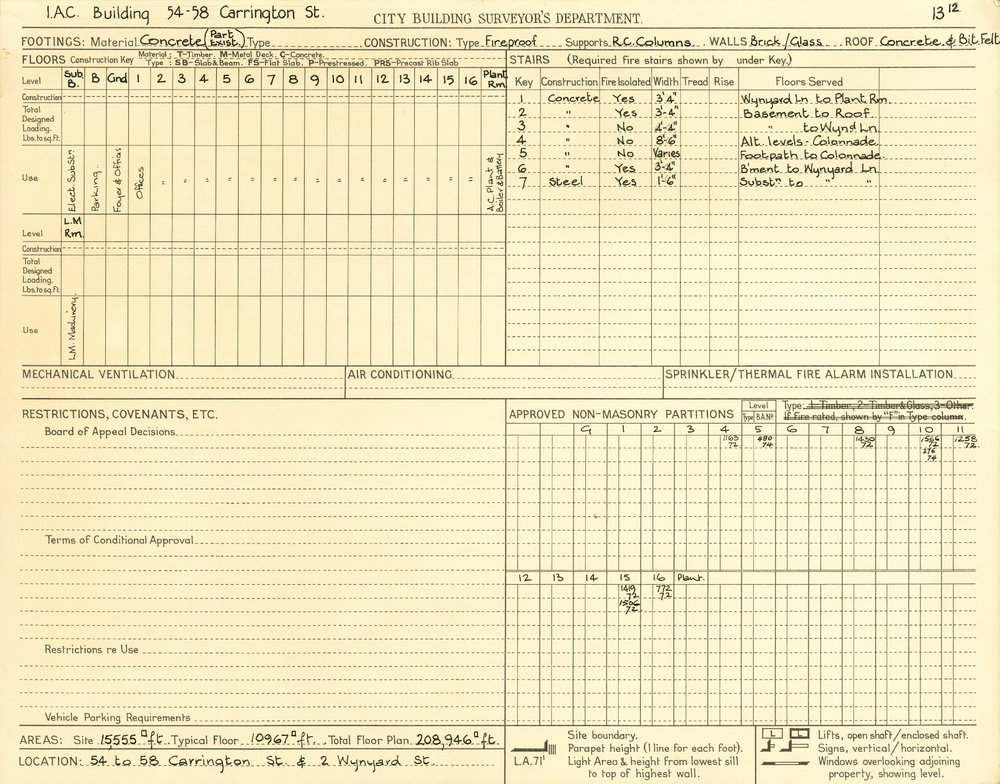 I.A.C. Building 54-58 Carrington St.
CITY BUILDING SURVEYOR'S DEPARTMENT.
13 12
FOOTINGS: Material Concrete (Part Exist.) Type CONSTRUCTION: Type Fireproof Supports R.C. Columns WALLS Brick/Glass ROOF Concrete & Bit. Felt
FLOORS Construction Key Material: T-Timber. M-Metal Deck. C-Concrete.
Type: SB-Slab & Beam. FS-Flat Slab. P-Prestressed. PRS-Precast Rib Slab
Level Sub B. B Gnd 1 2 3 4 5 6 7 8 9 10 11 12 13 14 15 16 Plant Rm
Construction
Total
Designed
Loading.
Lbs. to sq. ft.
Use Elect. Sub Stn Parking Foyer & Offices Offices " " " " " " " " " " " " " " " A.C. Plant & Boiler & Battery
Level L.M Rm.
Construction
Total
Designed
Loading.
Lbs. to sq. ft.
Use L.M. Machinery.
STAIRS (Required fire stairs shown by under Key.)
Key Construction Fire Isolated Width Tread Rise Floors Served
1 Concrete Yes 3'4" Wynyard Ln to Plant Rm.
2 " Yes 3'-4" Basement to Roof.
3 " No 4'-4" " to Wynd Ln.
4 " No 8'-6" Alt. levels - Colonnade.
5 " No Varies Footpath to Colonnade.
6 " Yes 3'-4" B'ment to Wynyard Ln.
7 Steel Yes 1'-6" Substn to " "
MECHANICAL VENTILATION
AIR CONDITIONING
SPRINKLER/THERMAL FIRE ALARM INSTALLATION
RESTRICTIONS, COVENANTS, ETC.
Board of Appeal Decisions
Terms of Conditional Approval
Restrictions re Use
Vehicle Parking Requirements
APPROVED NON-MASONRY PARTITIONS
Level
Type B.A.No
Type: 1-Timber, 2-Timber & Glass, 3-Other.
If fire rated, shown by "F" in Type column.
G 1 2 3 4 5 6 7 8 9 10 11
1165 480 1430 1566 1258
72 74 72 72 72
276
74
12 13 14 15 16 Plant.
1419 772
72 72
1506
72
AREAS: Site 15,555 □ft. Typical Floor 10967 □ft. Total Floor Plan 208,946 □ft.
LOCATION: 54 to 58 Carrington St. & 2 Wynyard St.
Site boundary.
Parapet height (1 line for each foot).
L.A. 71' Light Area & height from lowest sill
to top of highest wall.
L Lifts, open shaft/enclosed shaft.
Signs, vertical/horizontal.
Windows overlooking adjoining
property, showing level.